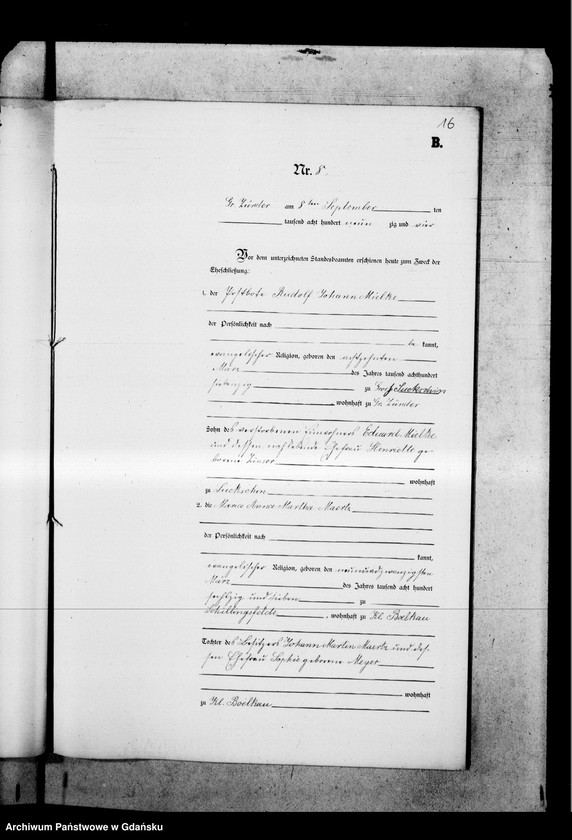 16
B.
Nr. 8.
Gr. Zünder am 8ten September ten
tausend acht hundert neun zig und vier
Vor dem unterzeichneten Standesbeamten erschienen heute zum Zweck der
Eheschließung:
1. der Postbote Rudolf Johann Mielke
der Persönlichkeit nach
be kannt,
evangelischer Religion, geboren den achtzehnten
März des Jahres tausend achthundert
siebenzig zu Groß Suckschin
wohnhaft zu Gr. Zünder
Sohn des verstorbenen Einwohners Eduard Mielke
und dessen nachlebende Ehefrau Henriette ge-
borene
wohnhaft
zu Suckschin
2. die Anna Martha Maertz
der Persönlichkeit nach
kannt,
evangelischer Religion, geboren den neunundzwanzigsten
März des Jahres tausend acht hundert
sechszig und sieben zu
Schillingsfelde, wohnhaft zu Kl. Boelkau
Tochter des Besitzers Johann Martin Maertz und des-
sen Ehefrau Sophie geborene Meyer
wohnhaft
zu Kl. Boelkau
Archiwum Państwowe w Gdańsku